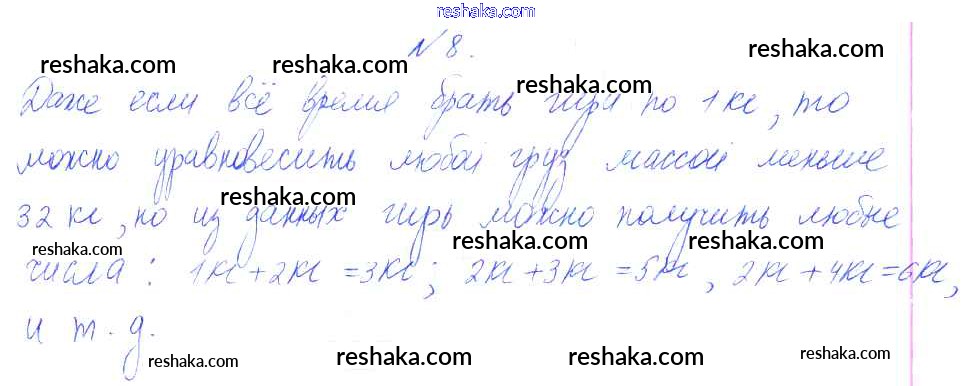 reshaka.com
N 8.
reshaka.com reshaka.com reshaka.com
Даже если всё время брать гири по 1 кг, то
можно уравновесить любой груз массой меньше
reshaka.com
32 кг, но из данных гирь можно получить любые
reshaka.com reshaka.com reshaka.com
числа: 1кг+2кг =3кг; 2кг+3кг =5кг, 2кг+4кг=6кг,
и т.д.
reshaka.com reshaka.com reshaka.com reshaka.com